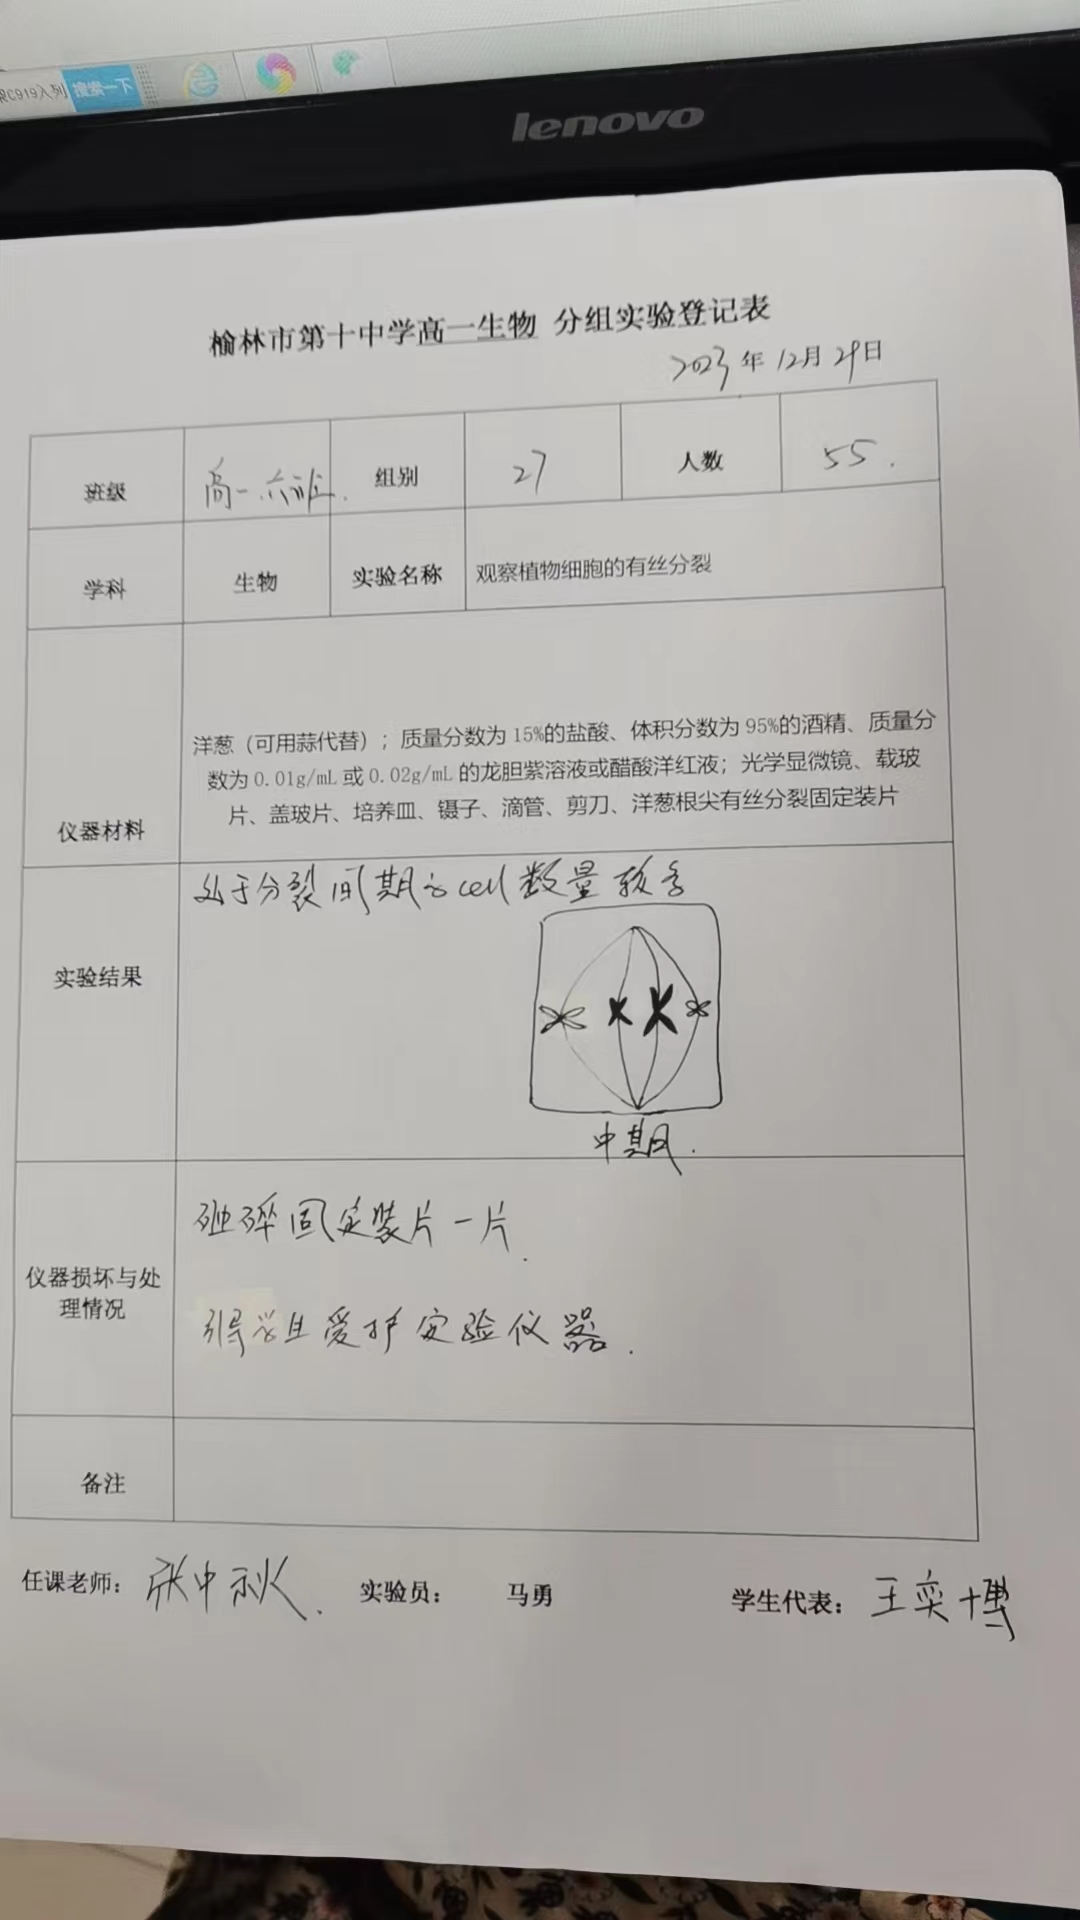 架C919入列 搜索一下
lenovo
榆林市第十中学高一生物 分组实验登记表
2023年12月29日
班级 高一.六班. 组别 27 人数 55.
学科 生物 实验名称 观察植物细胞的有丝分裂
洋葱（可用蒜代替）；质量分数为15%的盐酸、体积分数为95%的酒精、质量分
数为0.01g/mL或0.02g/mL的龙胆紫溶液或醋酸洋红液；光学显微镜、载玻
片、盖玻片、培养皿、镊子、滴管、剪刀、洋葱根尖有丝分裂固定装片
仪器材料
处于分裂间期的cell数量较多
实验结果
中期.
碰碎固定装片一片.
仪器损坏与处
理情况
学生爱护实验仪器.
备注
任课老师：张中秋. 实验员： 马勇 学生代表：王奕博